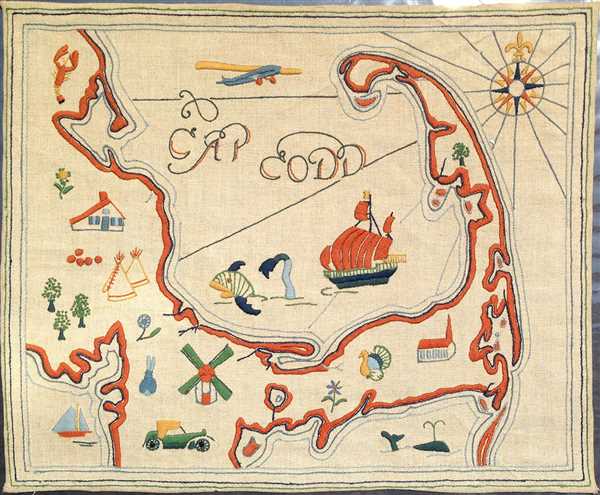 CAP CODD